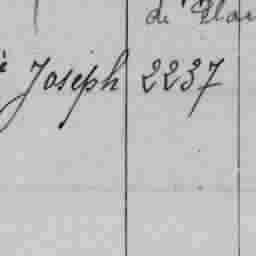 de
Joseph 2237